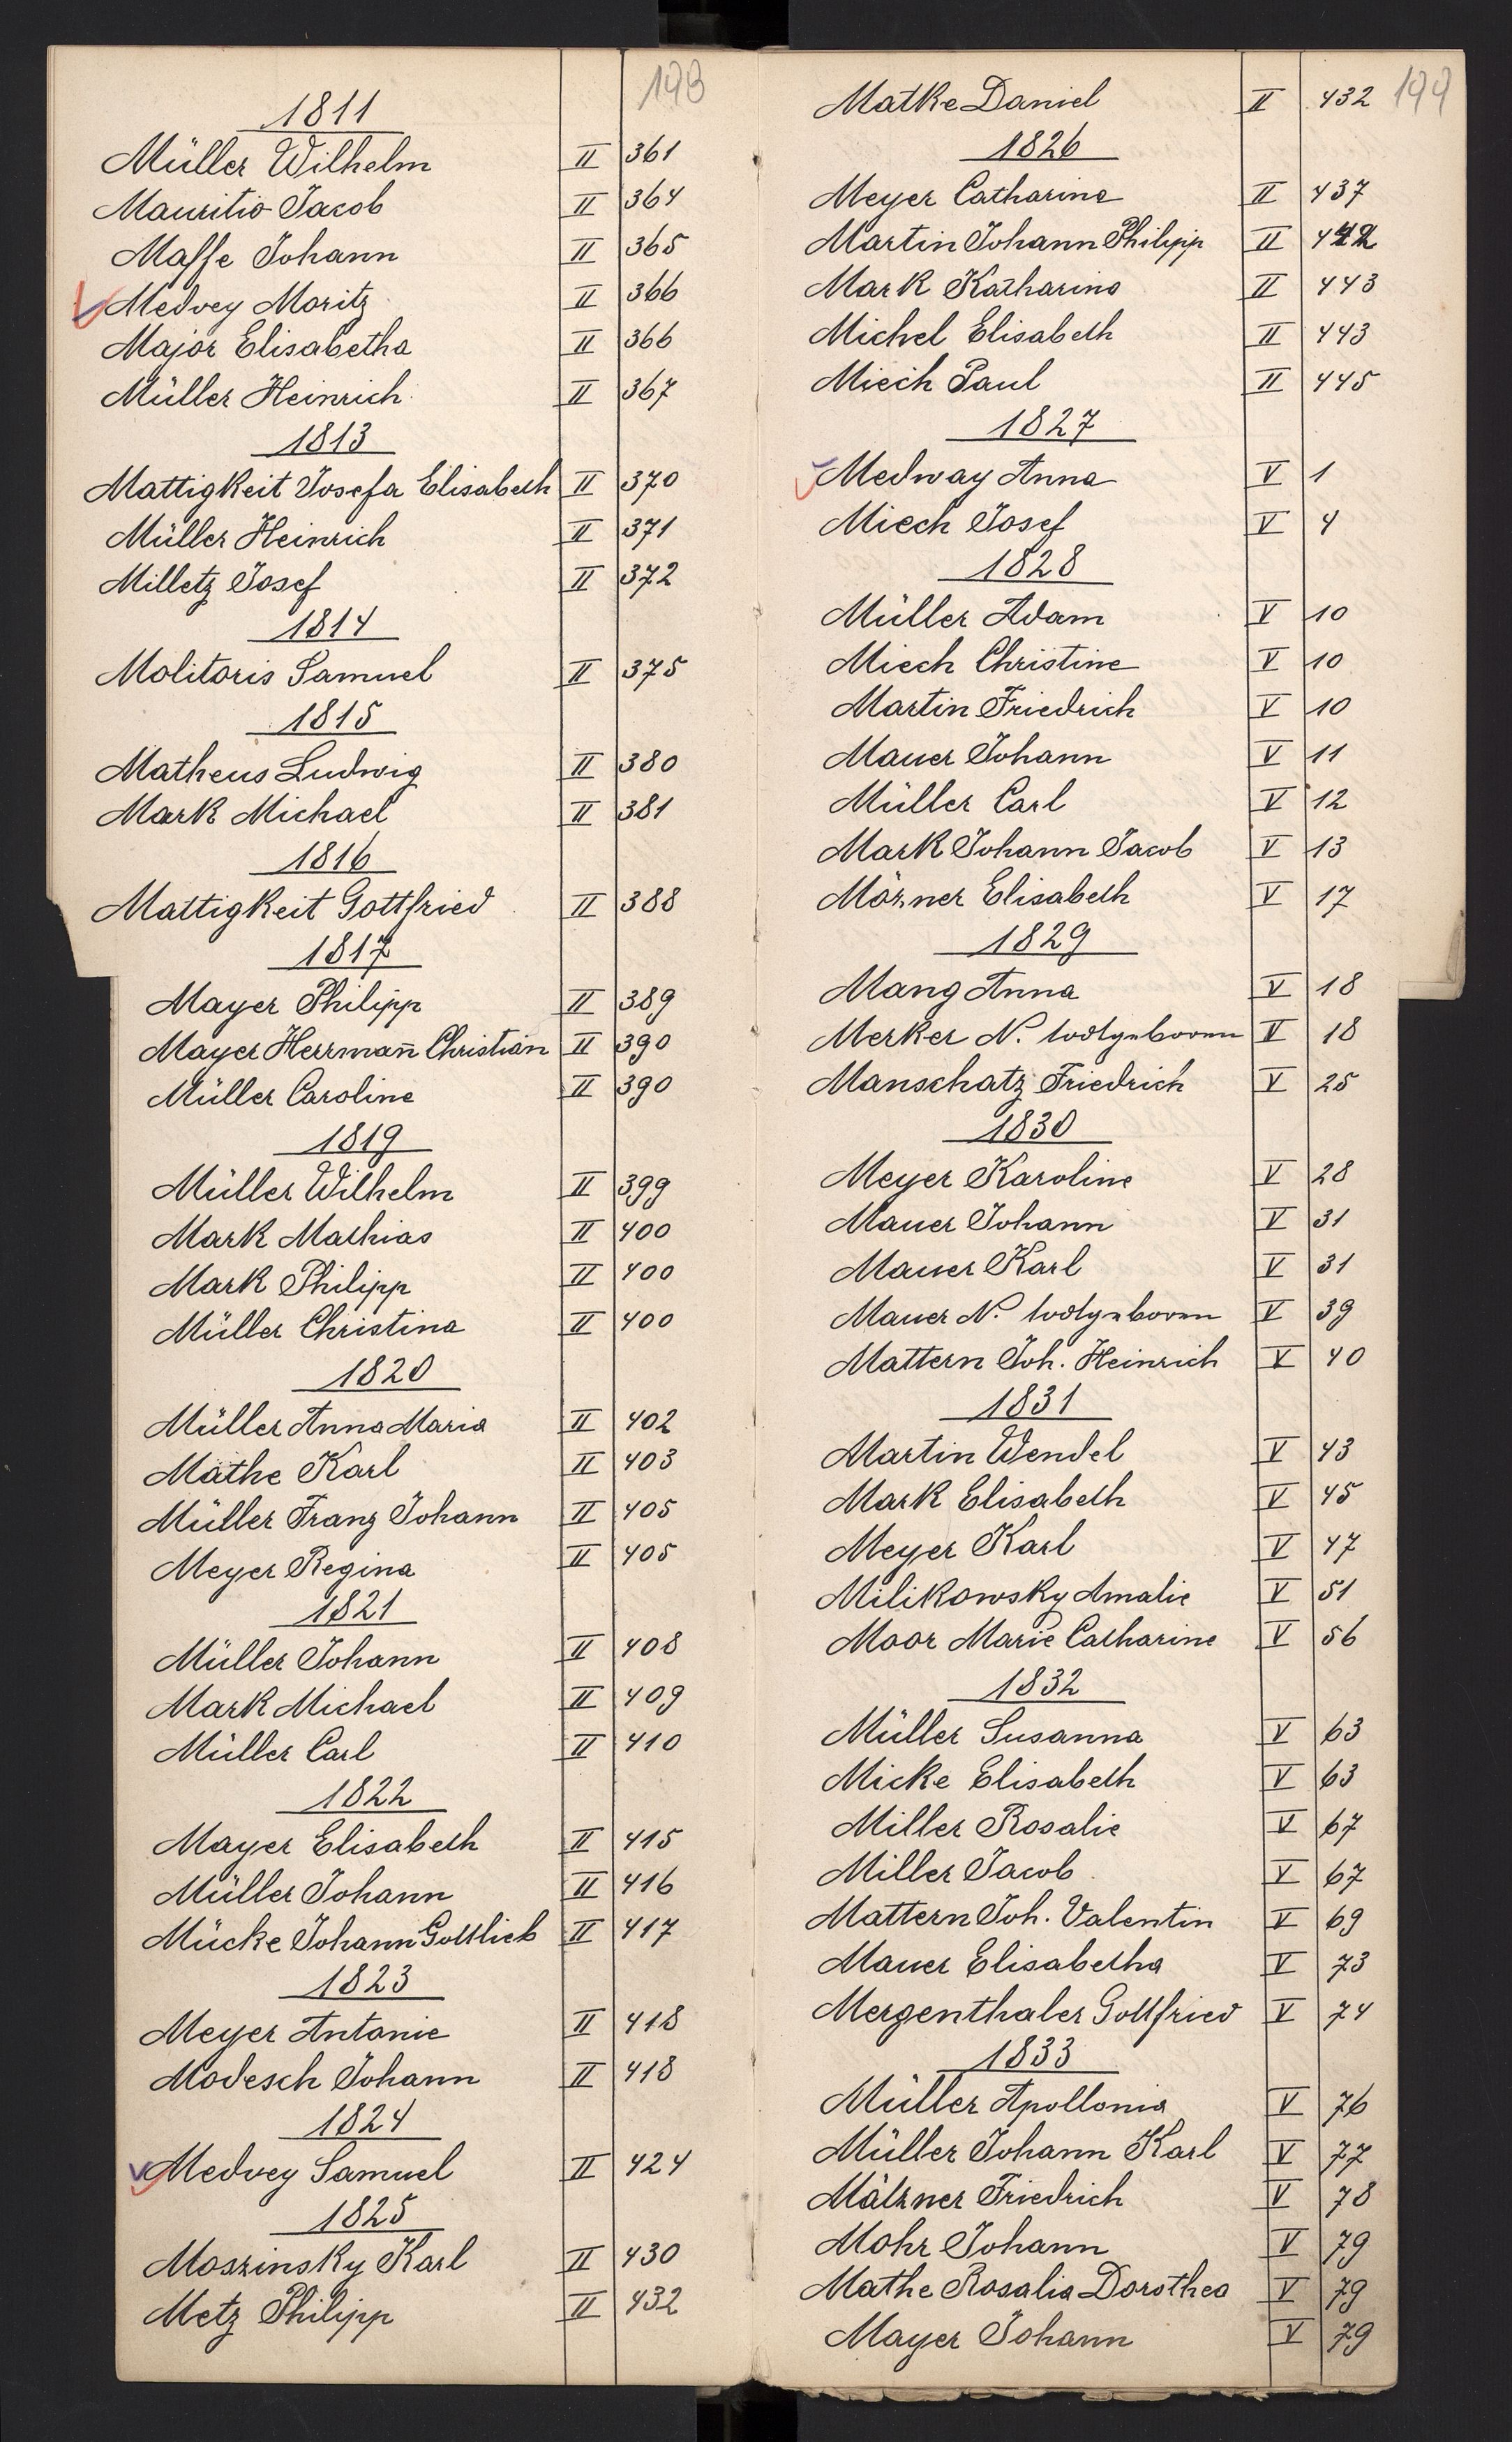 193
1811
Müller Wilhelm II 361
Mauritio Jacob II 364
Maffe Johann II 365
Medvey Moritz II 366
Major Elisabetha II 366
Müller Heinrich II 367
1813
Mattigkeit Josefa Elisabeth II 370
Müller Heinrich II 371
Milletz Josef II 372
1814
Molitoris Samuel II 375
1815
Matheus Ludwig II 380
Mark Michael II 381
1816
Mattigkeit Gottfried II 388
1817
Mayer Philipp II 389
Mayer Herrman̄ Christian II 390
Müller Caroline II 390
1819
Müller Wilhelm II 399
Mark Mathias II 400
Mark Philipp II 400
Müller Christina II 400
1820
Müller Anna Maria II 402
Mathe Karl II 403
Müller Franz Johann II 405
Meyer Regina II 405
1821
Müller Johann II 408
Mark Michael II 409
Müller Carl II 410
1822
Mayer Elisabeth II 415
Müller Johann II 416
Mücke Johann Gottlieb II 417
1823
Meyer Antonie II 418
Modesch Johann II 418
1824
Medvey Samuel II 424
1825
Moszinsky Karl II 430
Metz Philipp II 432
199
Matke Daniel II 432
1826
Meyer Catharine II 437
Martin Johann Philipp II 442
Mark Katharina II 443
Michel Elisabeth II 443
Miech Paul II 445
1827
Medway Anna V 1
Miech Josef V 4
1828
Müller Adam V 10
Miech Christine V 10
Martin Friedrich V 10
Mauer Johann V 11
Müller Carl V 12
Mark Johann Jacob V 13
Märzner Elisabeth V 17
1829
Mang Anna V 18
Merker N. todtgeboren V 18
Manschatz Friedrich V 25
1830
Meyer Karoline V 28
Mauer Johann V 31
Mauer Karl V 31
Mauer N. todtgeboren V 39
Mattern Joh. Heinrich V 40
1831
Martin Wendel V 43
Mark Elisabeth V 45
Meyer Karl V 47
Milikowsky Amalie V 51
Moor Marie Catharine V 56
1832
Müller Susanna V 63
Micke Elisabeth V 63
Miller Rosalie V 67
Miller Jacob V 67
Mattern Joh. Valentin V 69
Mauer Elisabetha V 73
Mergenthaler Gottfried V 74
1833
Müller Apollonia V 76
Müller Johann Karl V 77
Mälzner Friedrich V 78
Mohr Johann V 79
Mathe Rosalia Dorothea V 79
Mayer Johann V 79